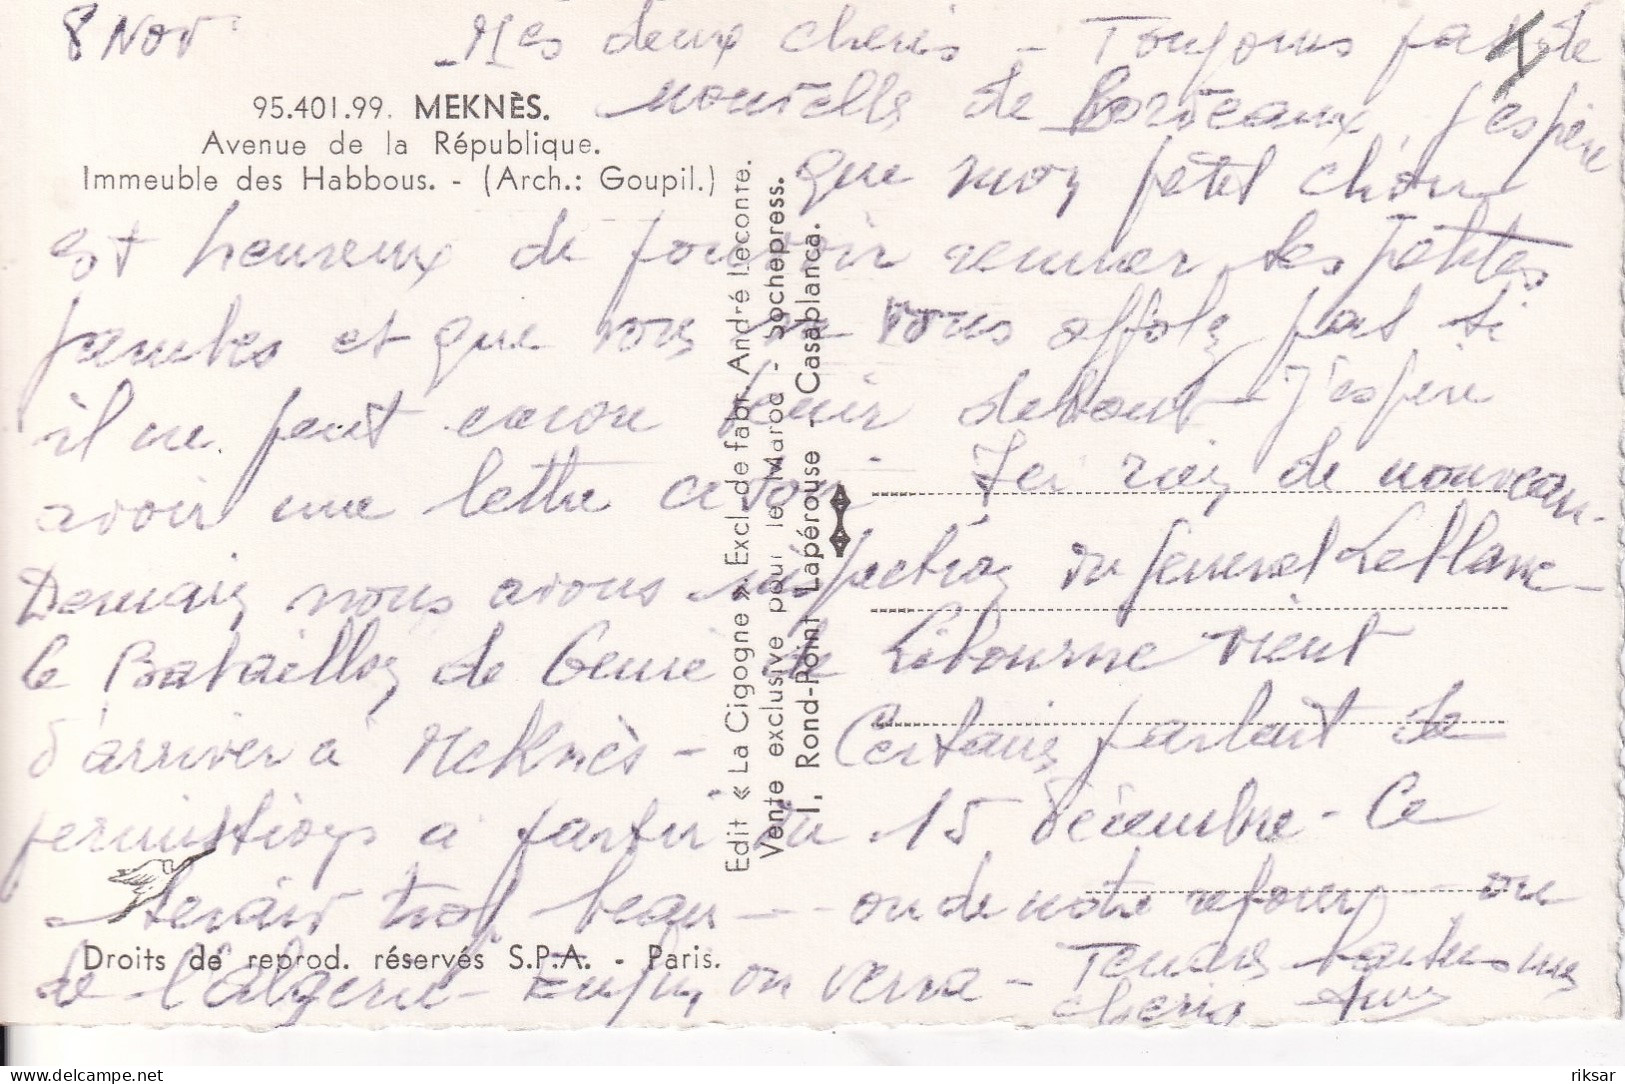 8 Nov
Mes deux cheris - Toujours pas de
nouvelle de Bordeaux, j'espère
95.401.99. MEKNÈS.
Avenue de la République.
Immeuble des Habbous. - (Arch.: Goupil.)
que mon petit chou
est heureux de pouvoir remuer ses petites
jambes et que vous ne vous affolez pas si
il ne peut encore tenir debout - J'espère
avoir une lettre ce soir. Ici rien de nouveau.
Demain nous avons inspection du general Leblanc -
Le Bataillon de Genie de Libourne vient
d'arriver à Meknès - Certains parlent de
permissions a partir du 15 décembre - Ce
serait trop beau - - ou de notre retour - ou
de l'algerie - Enfin, on verra - Tendres mes
cheris
Edit « La Cigogne » Excl. de fabr. André Leconte.
Vente exclusive pour le Maroc - Sochepress.
1, Rond-Point Lapérouse - Casablanca.
Droits de reprod. réservés S.P.A. - Paris.
riksar